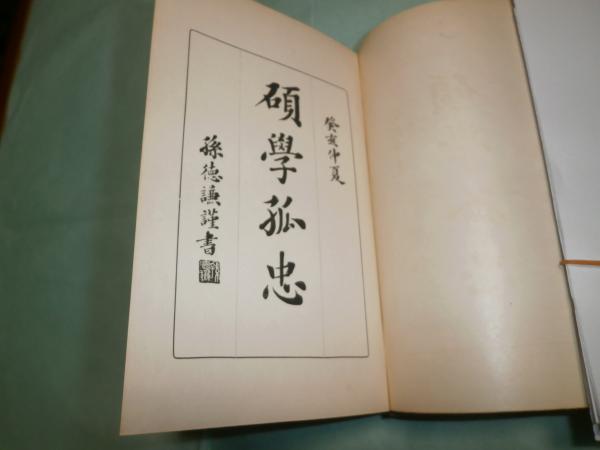 癸亥仲夏
碩學孤忠
孫德謙謹書